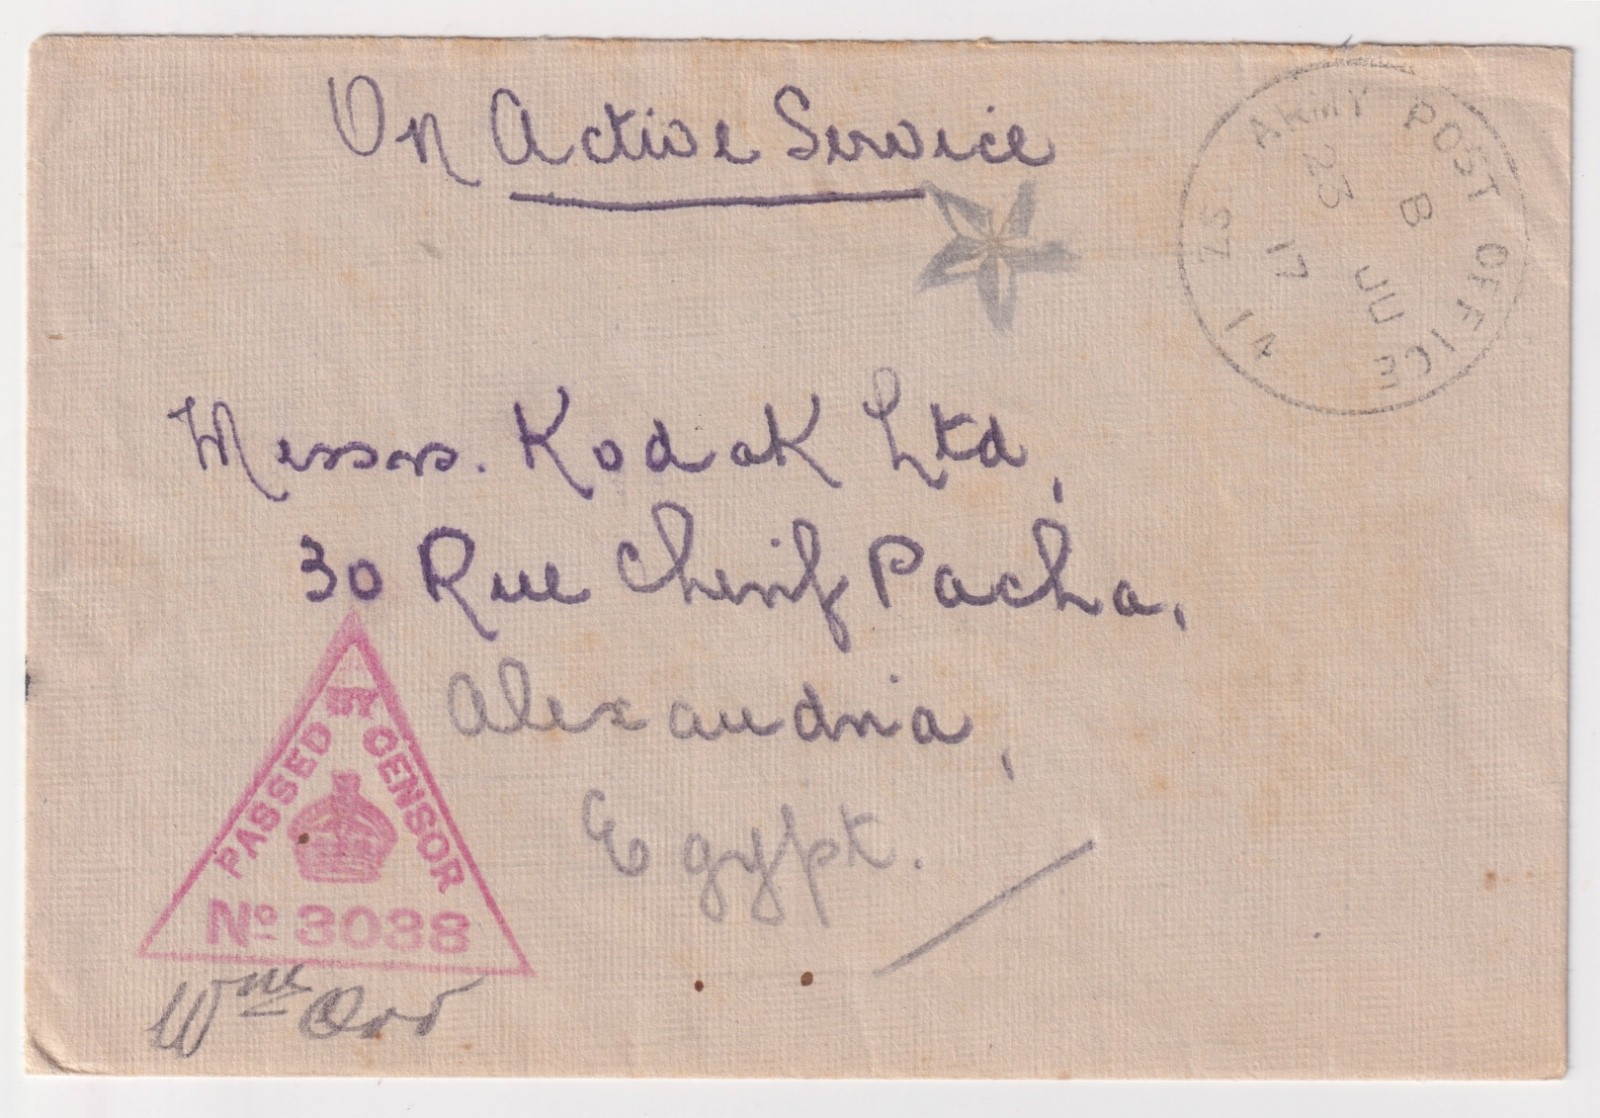 On Active Service
ARMY POST OFFICE
SZ 14
B
23 JU
17
Messrs. Kodak Ltd,
30 Rue Cherif Pacha,
Alexandria,
Egypt.
PASSED BY CENSOR
No 3038